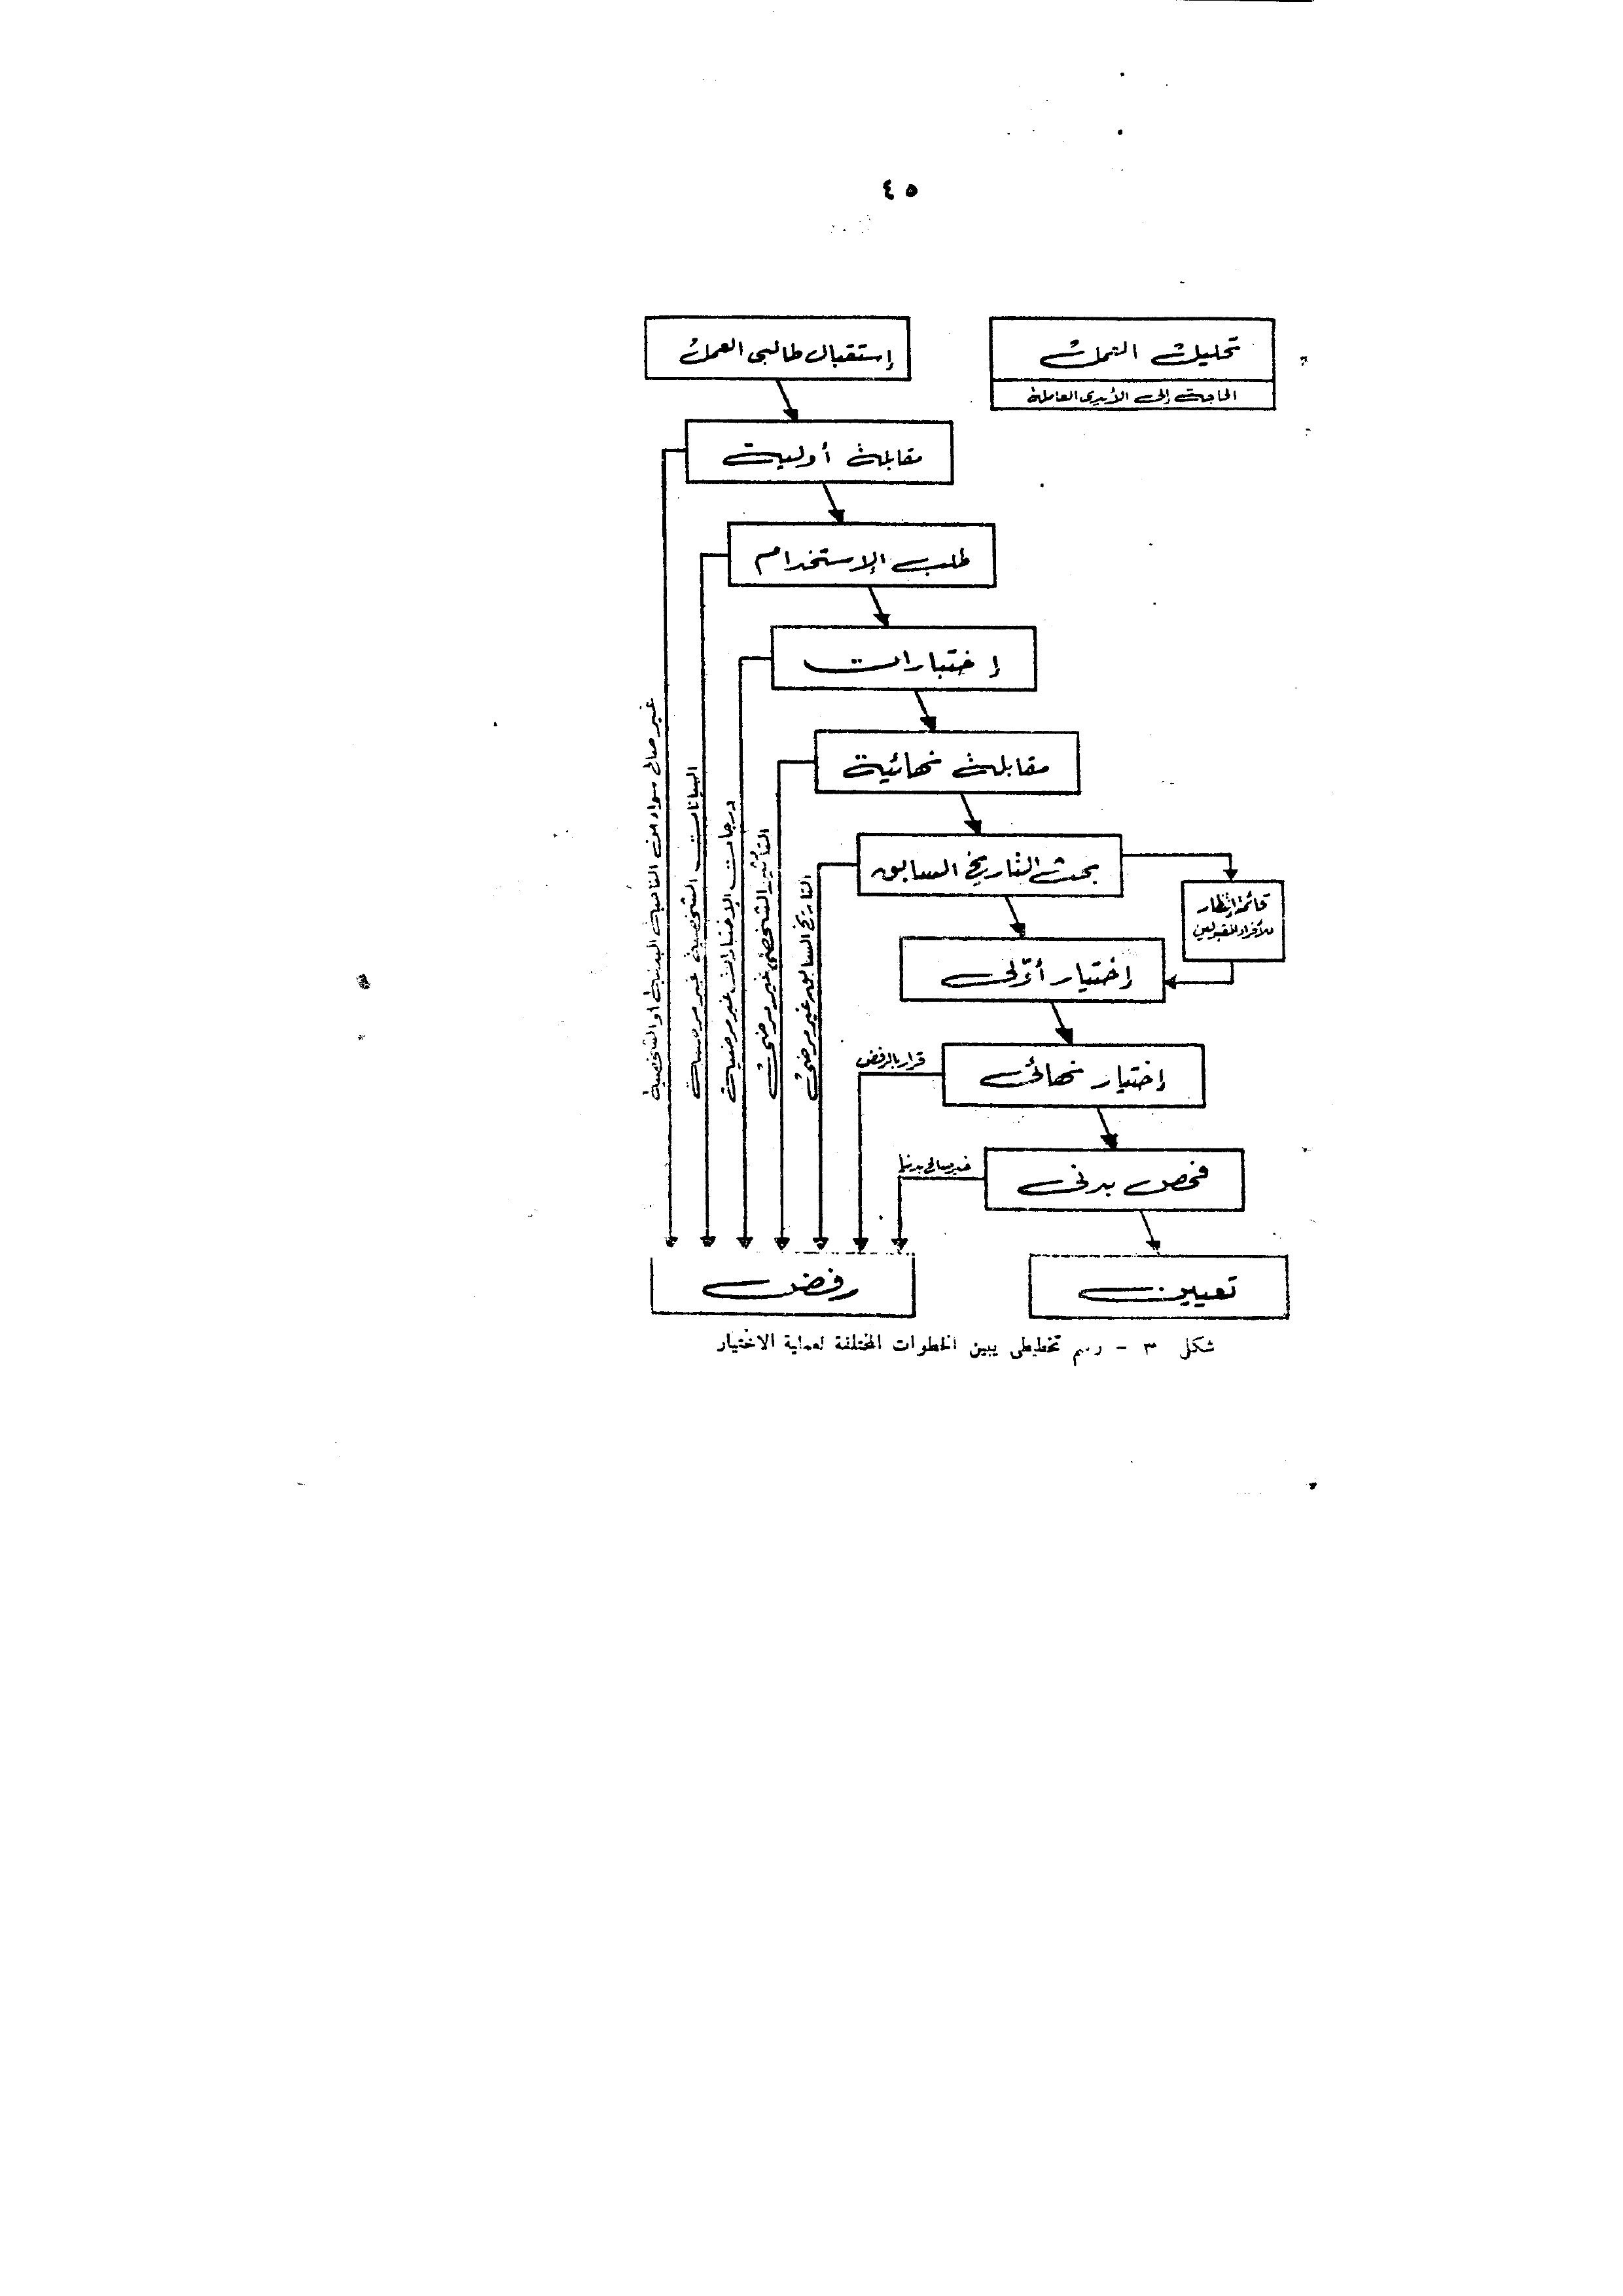 ٤٥
تحليل العمل
الحاجة إلى الأيدى العاملة
إستقبال طالبى العمل
مقابلة أولية
طلب الإستخدام
إختبارات
مقابلة نهائية
بحث التاريخ السابق
قائمة إنتظار
للأفراد المقبولين
إختيار أوّلى
إختيار نهائى
فحص بدنى
تعيين
رفض
غير صالح سواء من الناحية البدنية أو الشخصية
البيانات الشخصية غير مرضية
درجات الإختبارات غير مرضية
التأثير الشخصى غير مرضى
التاريخ السابق غير مرضى
قرار بالرفض
غير صالح بدنيا
شكل ٣ - رسم تخطيطى يبين الخطوات المختلفة لعملية الاختيار